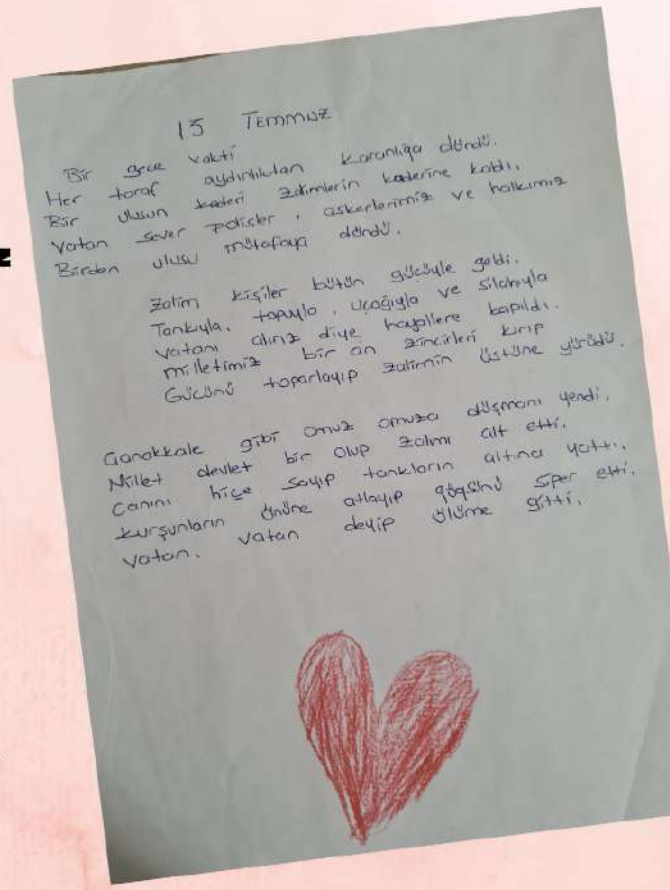 15 TEMMUZ
Bir gece vakti
Her taraf aydınlıktan karanlığa döndü.
Bir ulusun kaderi zalimlerin kaderine kaldı.
Vatan sever polisler, askerlerimiz ve halkımız
Birden ulusu mütafaya döndü.
Zalim kişiler bütün gücüyle geldi.
Tankıyla, topuyla, uçağıyla ve silahıyla
Vatanı alırız diye hayallere kapıldı.
milletimiz bir an zincirleri kırıp
Gücünü toparlayıp zalimin üstüne yürüdü.
Çanakkale gibi omuz omuza düşmanı yendi.
Millet devlet bir olup zalımı alt etti.
Canını hiçe sayıp tankların altına yattı.
kurşunların önüne atlayıp göğsünü siper etti.
Vatan. vatan deyip ölüme gitti.